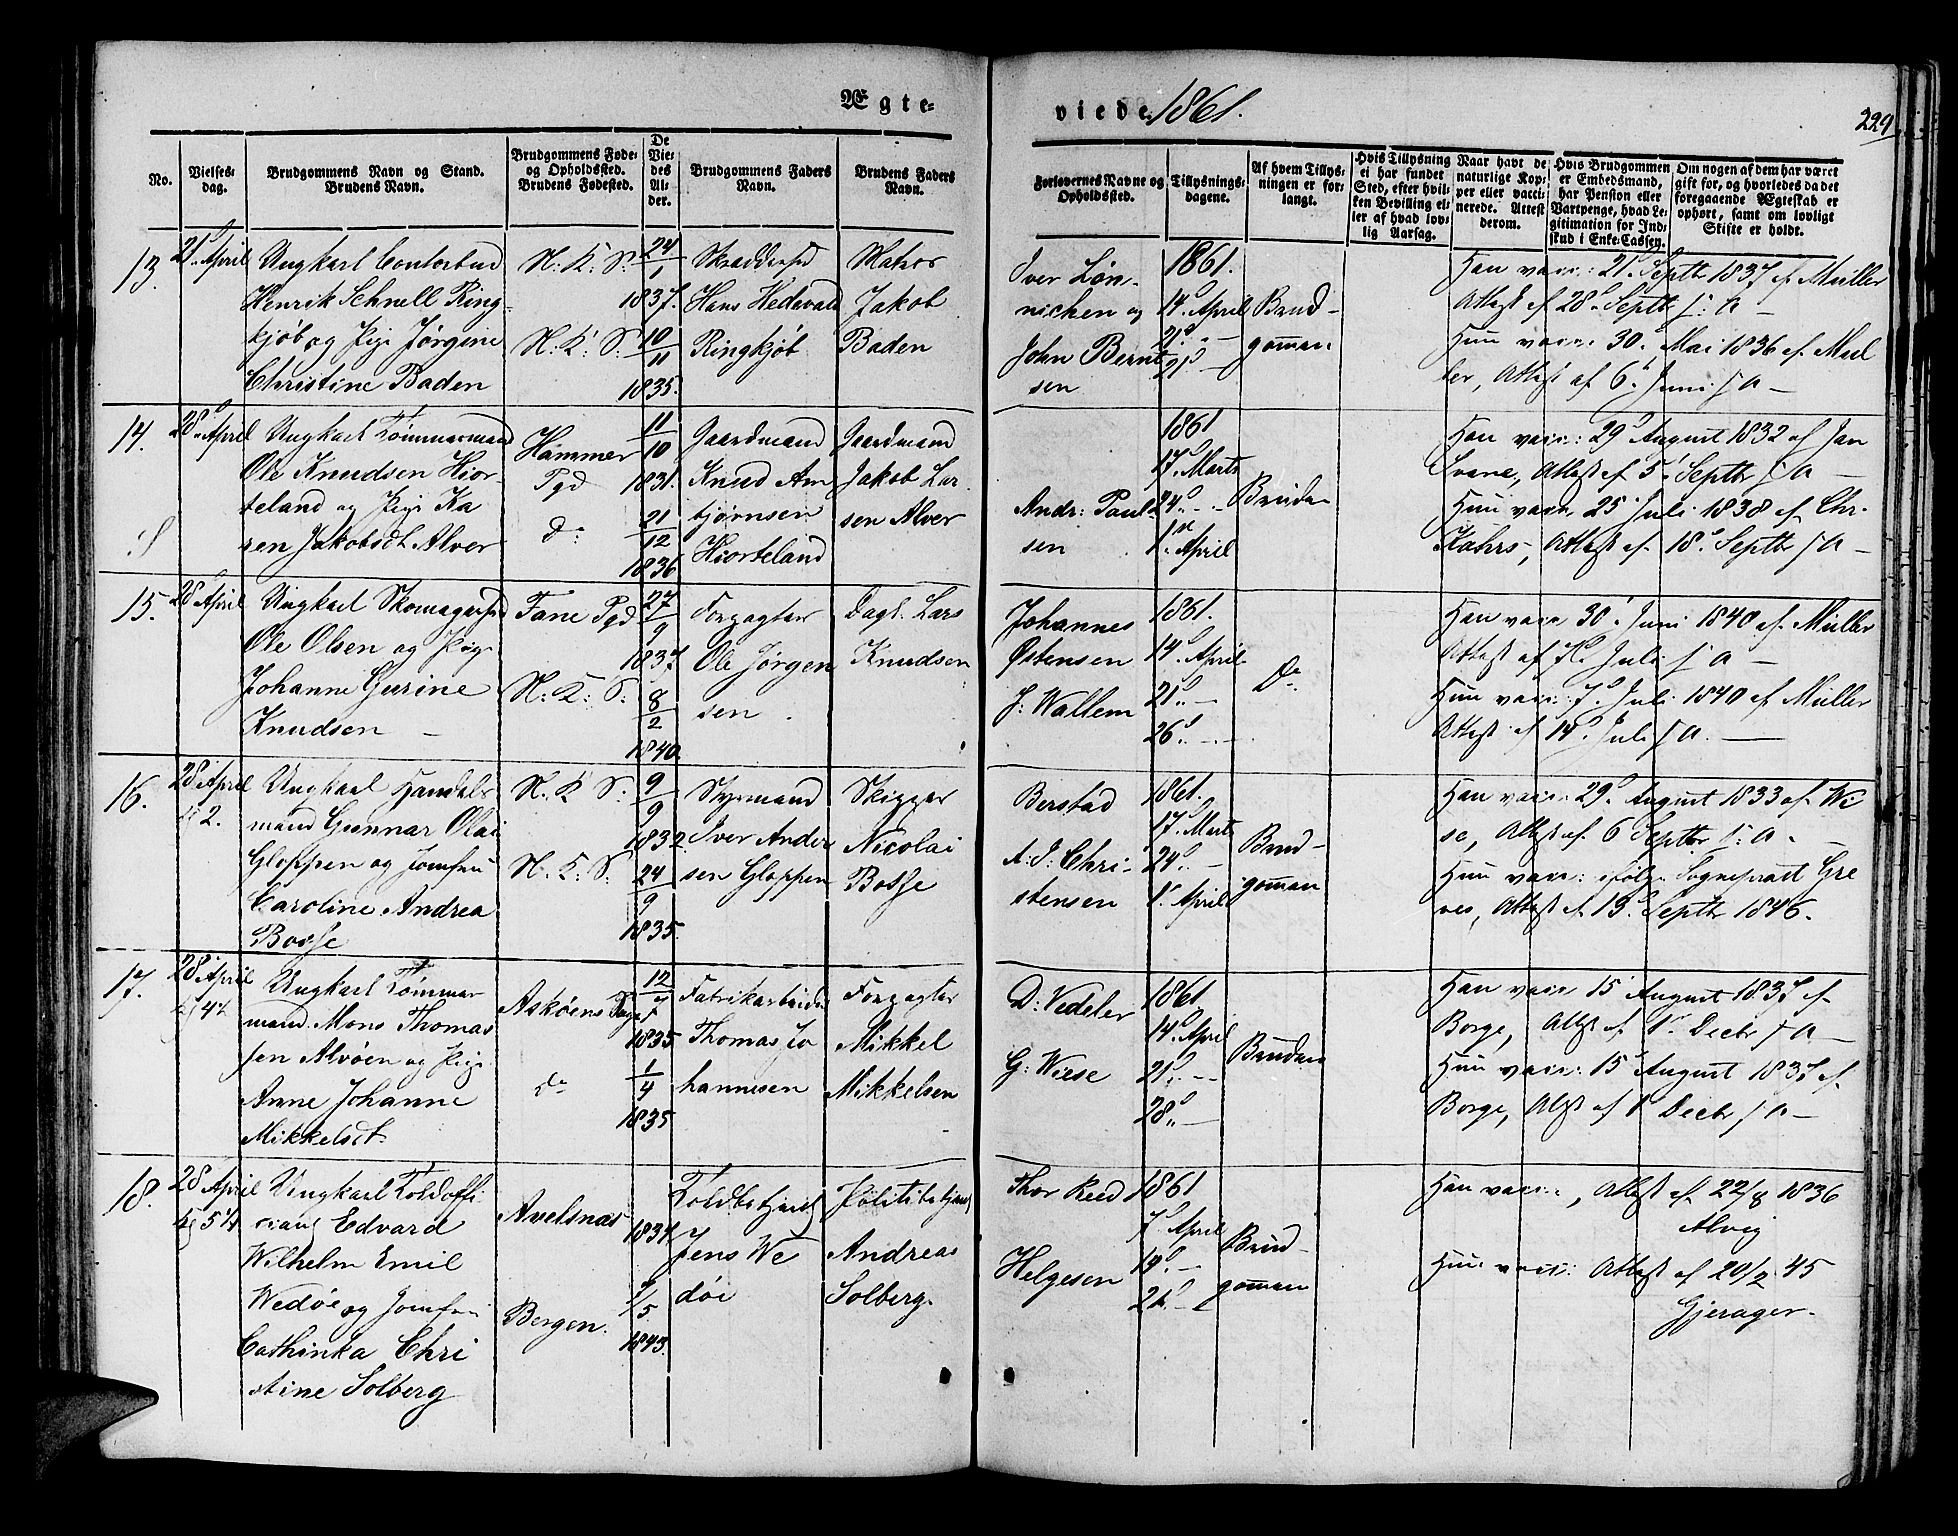 Ægte-
viede 1861.
229
No.
Vielses-
dag.
Brudgommens Navn og Stand.
Brudens Navn.
Brudgommens Føde-
og Opholdssted.
Brudens Fødested.
De
Vie-
des
Al-
der.
Brudgommens Faders
Navn.
Brudens Faders
Navn.
Forlovernes Navne og
Opholdssted.
Tillysnings-
dagene.
Af hvem Tillys-
ningen er for-
langt.
Hvis Tillysning
ei har fundet
Sted, efter hvil-
ken Bevilling el-
ler af hvad lov-
lig Aarsag.
Naar havt de
naturlige Kop-
per eller vacci-
nerede. Attest
derom.
Hvis Brudgommen
er Embedsmand,
har Pension eller
Vartpenge, hvad Le-
gitimation for Ind-
skud i Enke-Cassen.
Om nogen af dem har været
gift før, og hvorledes da det
foregaaende Ægteskab er
ophørt, samt om lovligt
Skifte er holdt.
13.
21. April
Ungkarl Contorbud
Henrik Schnell Ring-
kjøb og Pige Jørgine
Christine Baden
N: K: S:
N: K: S:
24/1
1837.
10/11
1835.
Skræddersvd
Hans Hedevald
Ringkjøb
Matros
Jakob
Baden
Iver Løn-
nichen og
John Bernt-
sen
1861.
14. April
21. —
21. —
Brud-
gommen
Han vacc: 21. Septbr 1837 af Müller
Attest af 28. Septbr s: a —
Hun vacc: 30. Mai 1836 af Mül
ler, Attest af 6. Juni s: a —
14.
28. April
S
Ungkarl Tømmermand
Ole Knudsen Hior-
teland og Pige Ka
ren Jakobsdt Alver
Hammer
Pgd
do
11/10
1831.
21/12
1836
Gaardmand
Knud Am
bjørnsen
Hiorteland
Gaardmand
Jakob Lar-
sen Alver
Andr: Paul-
sen
1861
17. Marts
24. —
1. April
Bruden
Han vacc: 29. August 1832 af Jan
Svane, Attest af 5. Septbr s: a —
Hun vacc: 25. Juli 1838 af Chr.
Kahrs, Attest af 18. Septbr s: a —
15.
28. April
Ungkarl Skomagersvd
Ole Olsen og Pige
Johanne Gurine
Knudsen —
Fane Pgd
N: K: S:
27/9
1837.
8/2
1840.
Forpagter
Ole Jørgen
sen
Dagl. Lars
Knudsen
Johannes
Østensen
J: Wallem
1861.
14. April
21. —
26. —
Do
Han vacc: 30. Juni 1840 af Müller
Attest af 7. Juli s: a —
Hun vacc: 7. Juli 1840 af Müller
Attest af 14. Juli s: a. —
16.
28 April
kl 2.
Ungkarl Handels
mand Gunnar Olai
Gloppen og Jomfru
Caroline Andrea
Bosse
N. K. S:
N: K: S:
9/9
1832.
24/9
1835.
Styrmand
Iver Ander
sen Gloppen
Skipper
Nicolai
Bosse
Berstad
A: J: Chri-
stensen
1861.
17. Marts
24. —
1. April
Brud-
gommen
Han vacc: 29. August 1833 af Wi
se, Attest af 6 Septbr s: a.
Hun vacc: ifølge Sogneprest Gre
ves, Attest af 13. Septbr 1846.
17.
28 April
kl 4½
Ungkarl Tømmer
mand Mons Thomas
sen Alvøen og Pige
Anne Johanne
Mikkelsdt.
Askøens Præg
do
12/7
1835
1/4
1835
Fabrikarbeider
Thomas Jo
hannesen
Forpagter
Mikkel
Mikkelsen
D: Vedeler
G: Wiese
1861.
14. April
21. —
28. —
Bruden
Han vacc 15 August 1837 af
Borge, Attest af 1. Decbr s: a —
Hun vacc: 15 August 1837 af
Borge, Attest af 1 Decbr s: a —
18.
28 April
kl 5¼
Ungkarl Toldoffi
ciant Edvard
Wilhelm Emil
Wedøe og Jomfru
Cathinka Chri
stine Solberg
Avelsnæs
Bergen.
1834
9/5
1843.
Toldbetjent
Jens We
døe
Politibetjent
Andreas
Solberg.
Thor Reed
Helgesen
1861
7. April
14. —
21. —
Brud-
gommen
Han vacc:, Attest af 22/8 1836
Alvig
Hun vacc: Attest af 20/2 45
Gjerager.